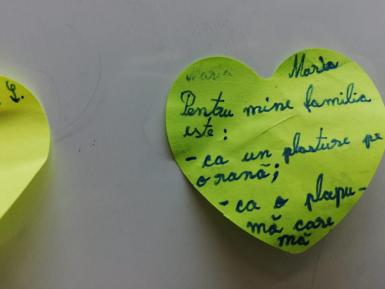 S.
Maria Maria
Pentru mine familia
este:
- ca un plasture pe
o rană;
- ca o plapu-
mă care
mă